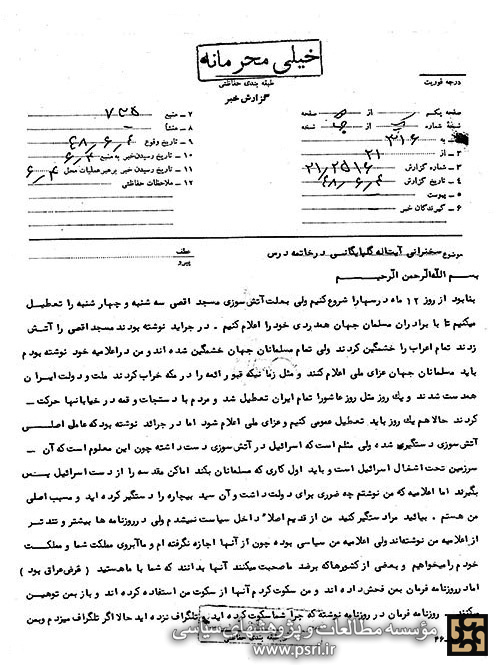 خیلی محرمانه
طبقه بندی حفاظتی
درجه فوریت
گزارش خبر
صفحه یکم از صفحه
نسخه شماره از نسخه
۱ ـ به ۳۱۶
۲ ـ از ۲۱
۳ ـ شماره گزارش
۴ ـ تاریخ گزارش ۴۸٫۶٫۴
۵ ـ پیوست
۶ ـ گیرندگان خبر
۷ ـ منبع
۸ ـ منشأ
۹ ـ تاریخ وقوع
۱۰ ـ تاریخ رسیدن خبر به منبع
۱۱ ـ تاریخ رسیدن خبر به رهبر عملیات محل ۶٫۴
۱۲ ـ ملاحظات حفاظتی
موضوع سخنرانی آیت اله گلپایگانی در خاتمه درس
عطف
پیرو
بسم الله الرحمن الرحیم
بنابود از روز ۱۲ ماه درسها را شروع کنیم ولی بعلت آتش سوزی مسجد اقصی سه شنبه و چهار شنبه را تعطیل
میکنیم تا با برادران مسلمان جهان همدردی خود را اعلام کنیم ـ در جراید نوشته بودند مسجد اقصی را آتش
زدند تمام اعراب را خشمگین کردند ولی تمام مسلمانان جهان خشمگین شده اند و من در اعلامیه خود نوشته بودم
باید مسلمانان جهان عزای ملی اعلام کنند و مثل زمانیکه قبور ائمه را در مکه خراب کردند ملت و دولت ایران
همدست شدند و یك روز مثل روز عاشورا تمام ایران تعطیل شد و مردم با دستجات و قمه در خیابانها حرکت ـ
کردند حالا هم یك روز باید تعطیل عمومی کنیم و عزای ملی اعلام شود اما در جرائد نوشته بود که عامل اصلی
آتش سوزی دستگیری شده ولی مسلم است که اسرائیل در آتش سوزی دست داشته چون این معلوم است که آن ـ
سرزمین تحت اشغال اسرائیل است و باید اول کاری که مسلمانان بکند اماکن مقدسه را از دست اسرائیل پس
بگیرند اما اعلامیه که من نوشتم چه ضرری برای دولت داشت و آن سید بیچاره را دستگیر کرده اید و مسبب اصلی
من هستم ـ بیائید مرا دستگیر کنید من از قدیم اصلا داخل سیاست نمیشدم ولی در روزنامه ها بیشتر و تندتر
از اعلامیه من نوشته اند ولی اعلامیه من سیاسی بوده چون از آنها اجازه نگرفته ام و ما آبروی ملکت شما و مملکت
خودم را میخواهیم و بعضی از کشورها که برضد ما صحبت میکنند آنها بدانند که شما با ما هستید ( غرض عراق بود )
اما در روزنامه فرمان بمن فحش داده اند و من سکوت کردم آنها از سکوت من استفاده کرده اند و باز بمن توهین
میکنند ـ روزنامه فرمان در روزنامه نوشته که چرا شما سکوت کرده اید و تلگراف نزده اید حالا اگر تلگراف میزدم و بمن
مؤسسه مطالعات و پژوهشهای سیاسی
www.psri.ir